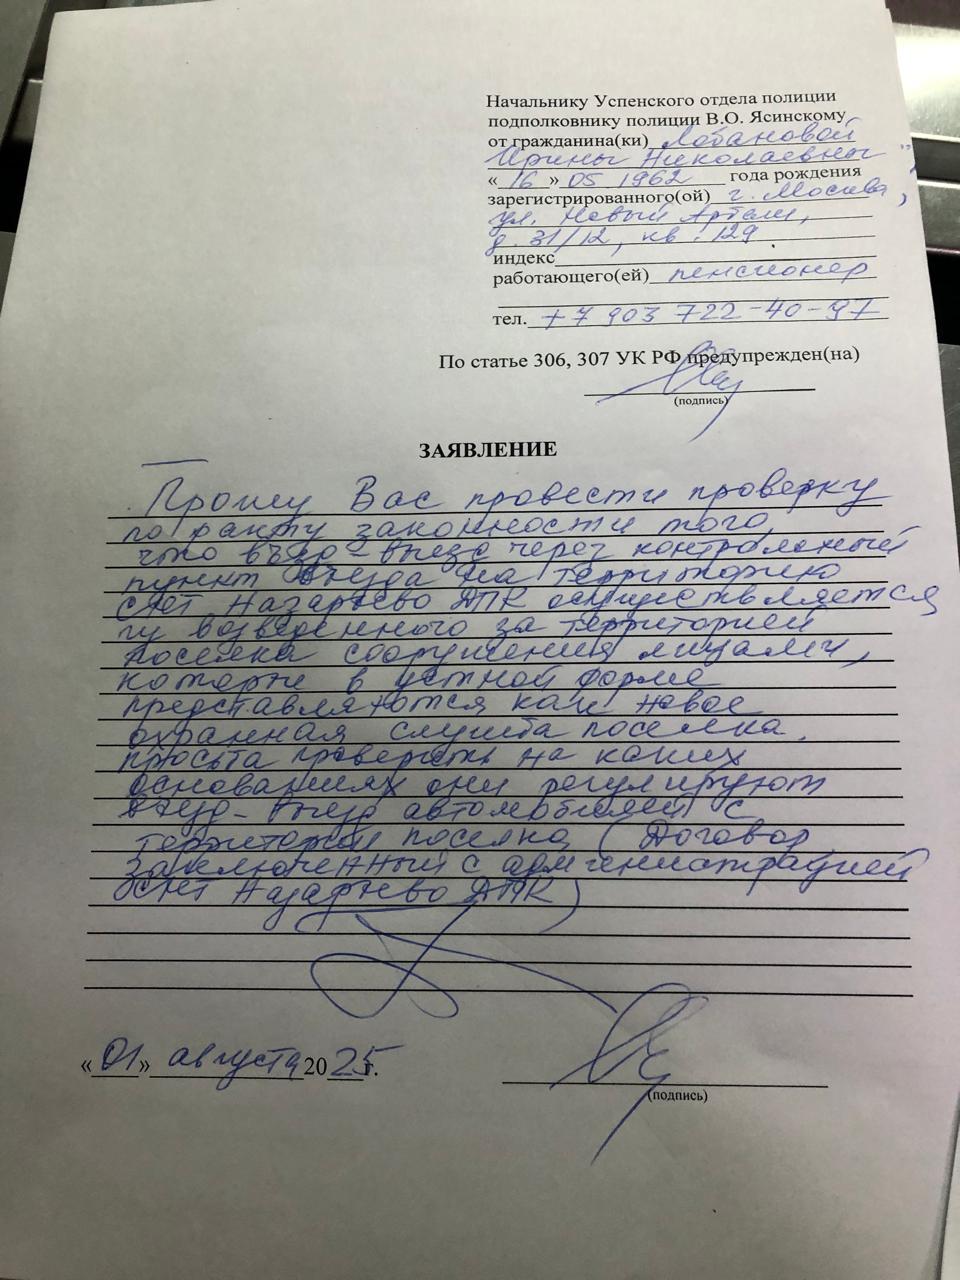 Начальнику Успенского отдела полиции
подполковнику полиции В.О. Ясинскому
от гражданина(ки) Лобановой
Ирины Николаевны
« 16 » 05 1962 года рождения
зарегистрированного(ой) г. Москва,
ул. Новый Артели,
д. 31/12, кв. 129
индекс
работающего(ей) пенсионер
тел. +7 903 722-40-97
По статье 306, 307 УК РФ предупрежден(на)
(подпись)
ЗАЯВЛЕНИЕ
Прошу Вас провести проверку
по факту законности того,
что въезд-выезд через контрольный
пункт въезда на территорию
СНТ Назарьево ДПК осуществляется
из возведенного за территорией
поселка сооружения лицами,
которые в устной форме
представляются как новое
охранная служба поселка,
просьба проверить на каких
основаниях они регулируют
въезд-выезд автомобилей с
территории поселка (Договор
заключенный с администрацией
СНТ Назарьево ДПК)
« 01 » августа 2025 г.
(подпись)